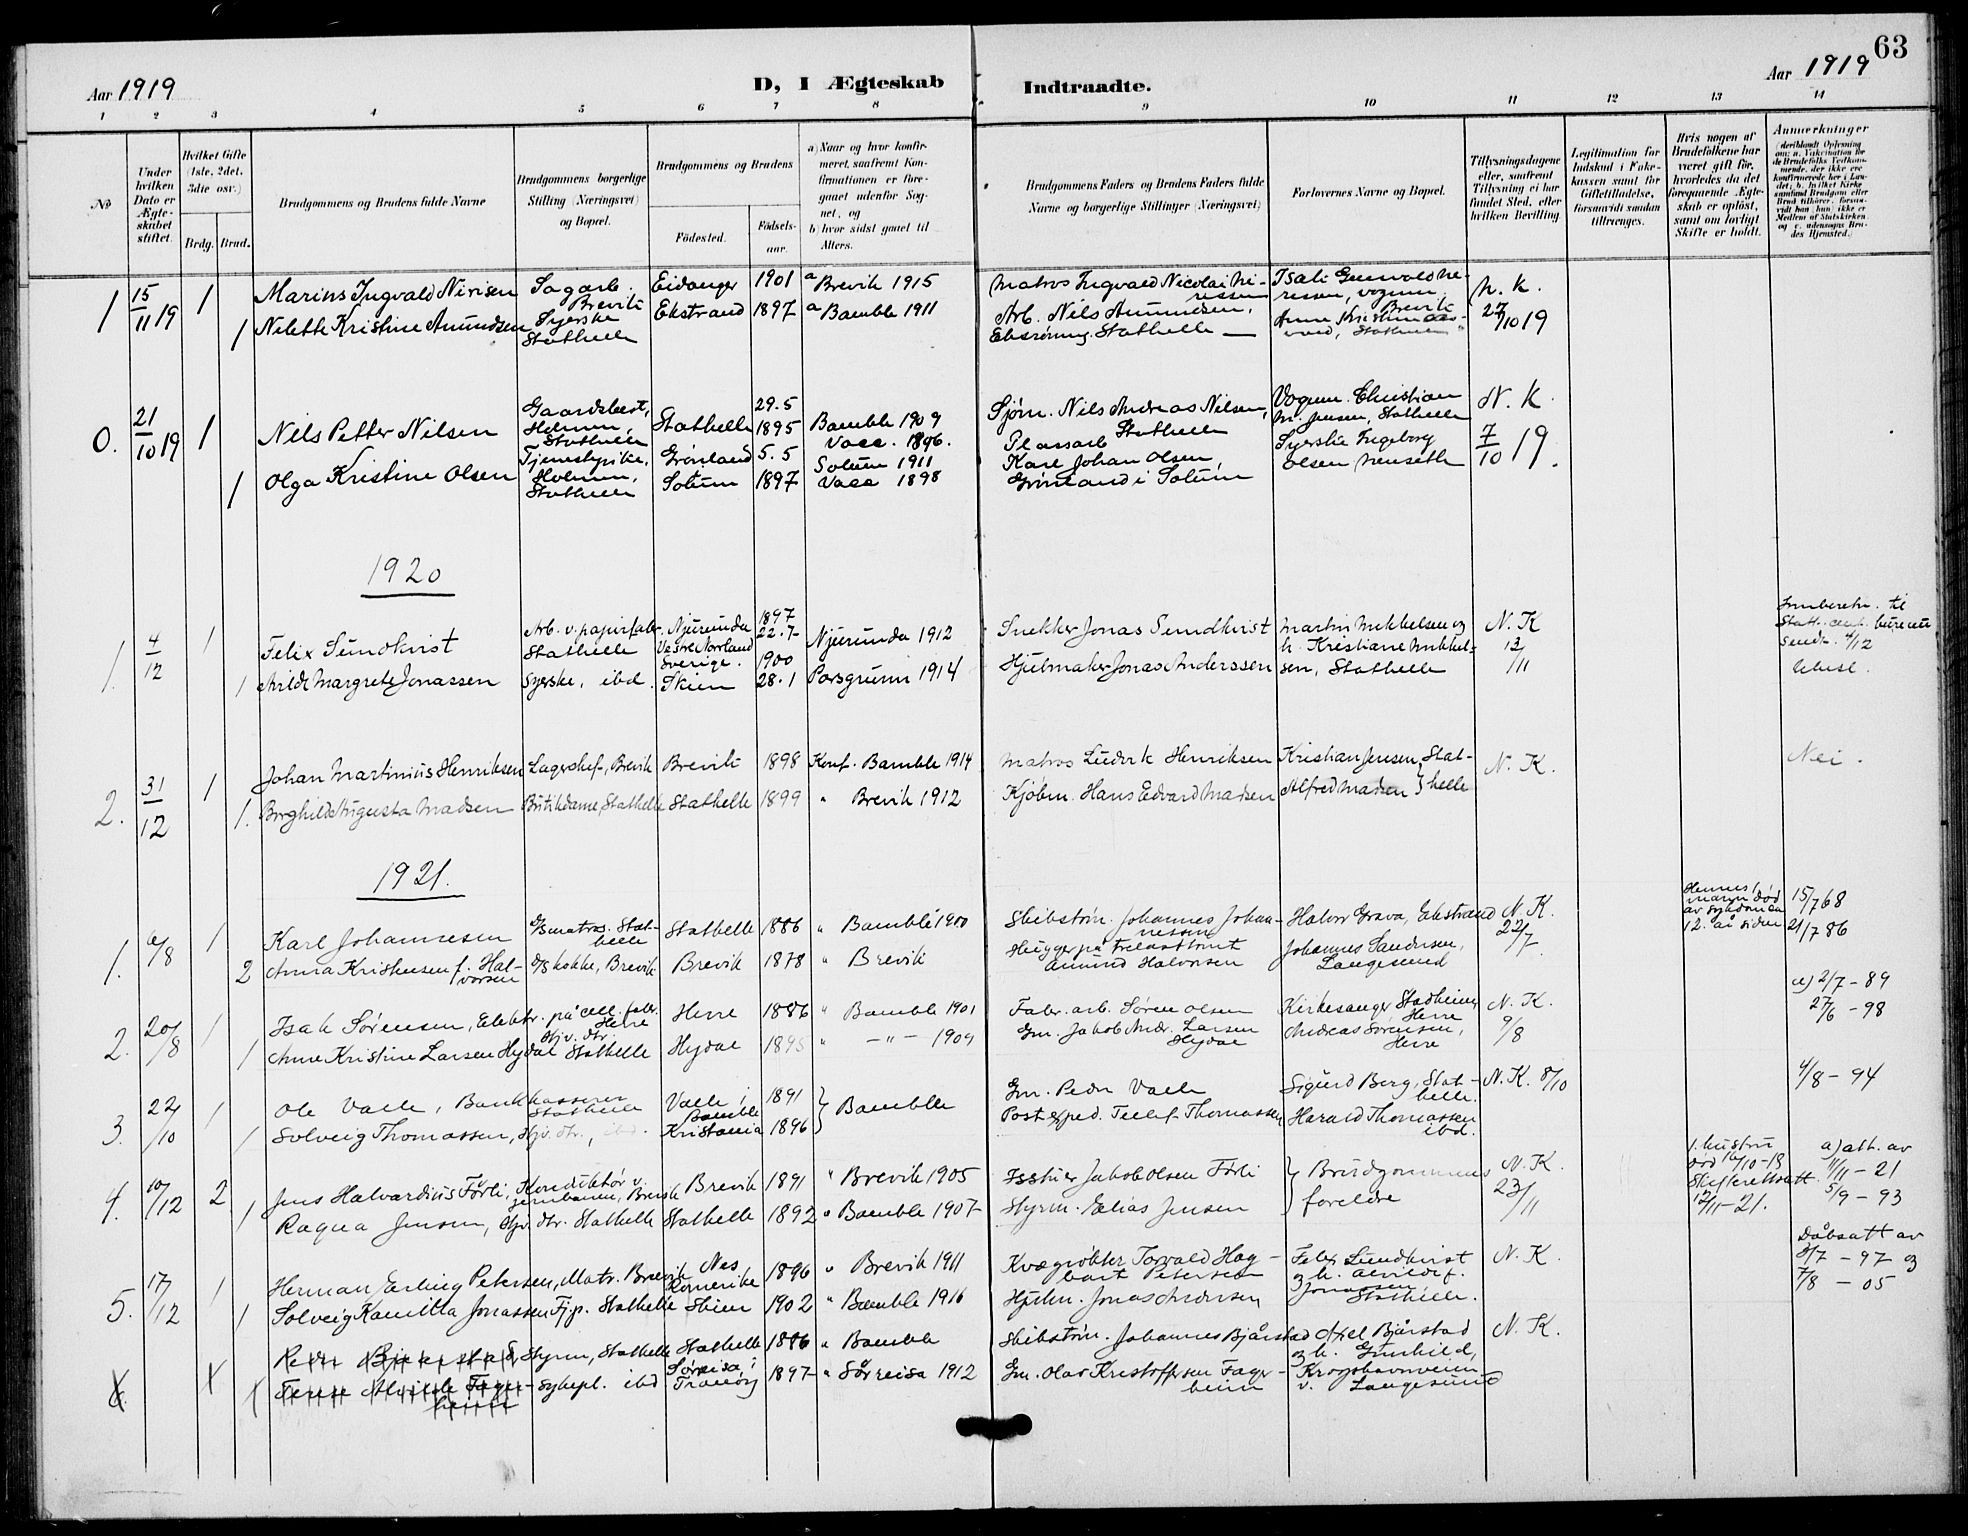 63
Aar 1919
D, I Ægteskab Indtraadte.
Aar 1919
1 2 3 4 5 6 7 8 9 10 11 12 13 14
No
Under hvilken Dato er Ægteskabet stiftet.
Hvilket Gifte (1ste, 2det, 3die osv.)
Brdg. Brud.
Brudgommens og Brudens fulde Navne
Brudgommens borgerlige Stilling (Næringsvei) og Bopæl.
Brudgommens og Brudens
Fødested.
Fødselsaar.
a) Naar og hvor konfirmeret, saafremt Konfirmationen er foregaaet udenfor Sognet, og
b) hvor sidst gaaet til Alters.
Brudgommens Faders og Brudens Faders fulde Navne og borgerlige Stillinger (Næringsvei)
Forlovernes Navne og Bopæl.
Tillysningsdagene eller, saafremt Tillysning ei har fundet Sted, efter hvilken Bevilling
Legitimation for Indskud i Enkekassen samt for Giftetilladelse, forsaavidt saadan tiltrænges.
Hvis nogen af Brudefolkene har været gift før, hvorledes da det foregaaende Ægteskab er opløst, samt om lovligt Skifte er holdt.
Anmerkninger (deriblandt Oplysning om: a. Vakcination for de Brudefolks Vedkommende, der ikke ere konfirmerede her i Landet; b. hvilket Kirkesamfund Brudgom eller Brud tilhører, forsaavidt han (hun) ikke er Medlem af Statskirken og c. udensogns Brudes Hjemsted.)
1 15/11 19 1 Marius Ingvald Nirisen Sagarb. Brevik Eidanger 1901 a Brevik 1915 Matros Ingvald Nicolai Nirissen Brevik N. K.
1 Nilette Kristine Amundsen Syerske Stathelle Ekstrand 1897 a Bamble 1911 Arb. Nils Amundsen, Stathelle 27/10 19
0. 21/10 19 1 Nils Petter Nilsen Gaardsbest, Holmen, Stathelle Stathelle 29.5 1895 Bamble 1909 Vacc. 1896. Sjøm. Nils Andreas Nilsen, Stathelle Vognm. Christian M. Jensen, Stathelle N. K.
1 Olga Kristine Olsen Tjenestpike, Holmen, Stathelle Grønland Solum 5.5 1897 Solum 1911 Vacc 1898 Plassarb Karl Johan Olsen Grønland i Solum Syerske Ingeborg Olsen 7/10 19.
1920
1. 4/12 1 Felix Sundkvist Arb. v. papirfabr. Stathelle Njurunda Vestre Norrland Sverige. 1897 22.7 Njurunda 1912 Snekker Jonas Sundkvist Martin Mikkelsen og h. Kristiane Mikkelsen, Stathelle N. K 13/11 Innberetn. til Stat. cent. bureau sendt. 4/12
1 Arilde Margrete Jonassen Syerske, ibd. Skien 1900 28.1 Porsgrunn 1914 Hjulmaker Jonas Anderssen
2. 31/12 1 Johan Martinius Henriksen Lagershef, Brevik Brevik 1898 Konf. Bamble 1914 Matros Ludvik Henriksen Kristian Jensen, Stathelle N. K. Nei.
1. Borghild Augusta Madsen Butikdame, Stathelle Stathelle 1899 " Brevik 1912 Kjøbm. Hans Edvard Madsen Alfred Madsen
1921.
1. 6/8 1 Karl Johannesen D/S matros. Stathelle Stathelle 1886 " Bamble 1900 Skibstøm. Johannes Johannessen Halvor Grava, Ekstrand N. K. 22/7 15/7 68
2 Anna Kristensen f. Halvorsen D/S kokke, Brevik Brevik 1878 " Brevik Hugger på trelasttomt Amund Halvorsen Johannes Sandersen, Langesund 12. år siden 21/7 86
2. 20/8 1 Isak Sørensen, Elektr. på cell. fabr. Herre Herre 1886 " Bamble 1901 Fabr. arb. Søren Olsen Kirkesanger Stadheim, Herre N. K. 9/8 a) 2/7 - 89
1 Anne Kristine Larsen Hydal Hjv. dtr. Stathelle Hydal 1895 " -"- 1909 Gm. Jakob Andr. Larsen Hydal Andreas Sørensen, Herre 27/6 - 98
3. 22/10 1 Ole Valle, Bankkasserer Stathelle Valle i Bamble 1891 } Bamble Gm. Peder Valle Sigurd Berg, Stathelle. N. K. 8/10 4/8 - 94
1 Solveig Thomassen, Hjv. dtr., ibd. Kristiania 1896 Postexped. Tellef Thomassen Harald Thomassen ibd.
4. 10/12 2 Jens Halvardius Førli, Konduktør v. jernbanen, Brevik Brevik 1891 " Brevik 1905 Jakob Olsen Førli } Brudgommens forelde N. K. 23/11 1. hustru død 16/10-18 Skifterettsatt. 12/11 - 21. a) att. av 11/11 - 21
1 Ragna Jensen, Hjv. dtr. Stathelle Stathelle 1892 " Bamble 1907 Styrm. Elias Jensen 5/9 - 93
5. 17/12 1 Herman Erling Petersen, Matr. Brevik Nes Romerike 1896 " Brevik 1911 Kvægrøkter Torvald Hagbart Petersen Felix Sundkvist og h. f. Jonassen Stathelle. N. K. Dåbsatt av 3/7 - 97 og
1 Solveig Kamilla Jonassen Tj.p. Stathelle Skien 1902 " Bamble 1916 Hjulm. Jonas Andersen 7/8 - 05
6. 1 Peder Bjårstad Styrm, Stathelle Stathelle 1886 " Bamble Skibstøm. Johannes Bjårstad Axel Bjårstad og h. Gunhild, N. K.
1 Terese Alvilde Fagerheim Sykepl. ibd Sørreisa i Tranøy 1897 " Sørreisa 1912 Gm. Olav Kristoffersen Fagerheim Krogshavnveien v. Langesund